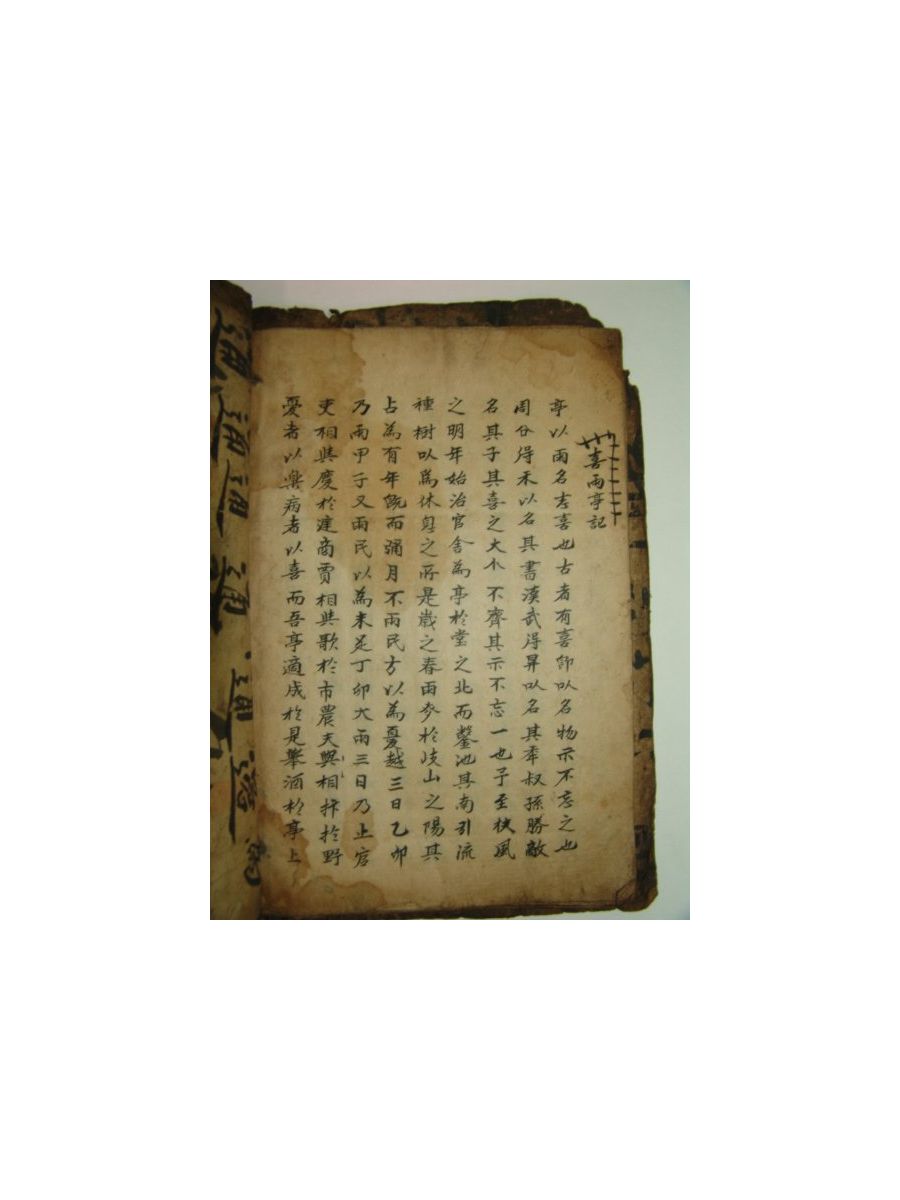 喜雨亭記
亭以雨名志喜也古者有喜卽以名物示不忘之也
周公得禾以名其書漢武得昇以名其年叔孫勝敵
名其子其喜之大小不齊其示不忘一也予至扶風
之明年始治官舍為亭於堂之北而鑿池其南引流
種樹以為休息之所是歲之春雨麥於岐山之陽其
占為有年旣而彌月不雨民方以為憂越三日乙卯
乃雨甲子又雨民以為未足丁卯大雨三日乃止官
吏相與慶於𨒪商賈相與歌於市農夫與相抃於野
憂者以樂病者以喜而吾亭適成於是擧酒於亭上